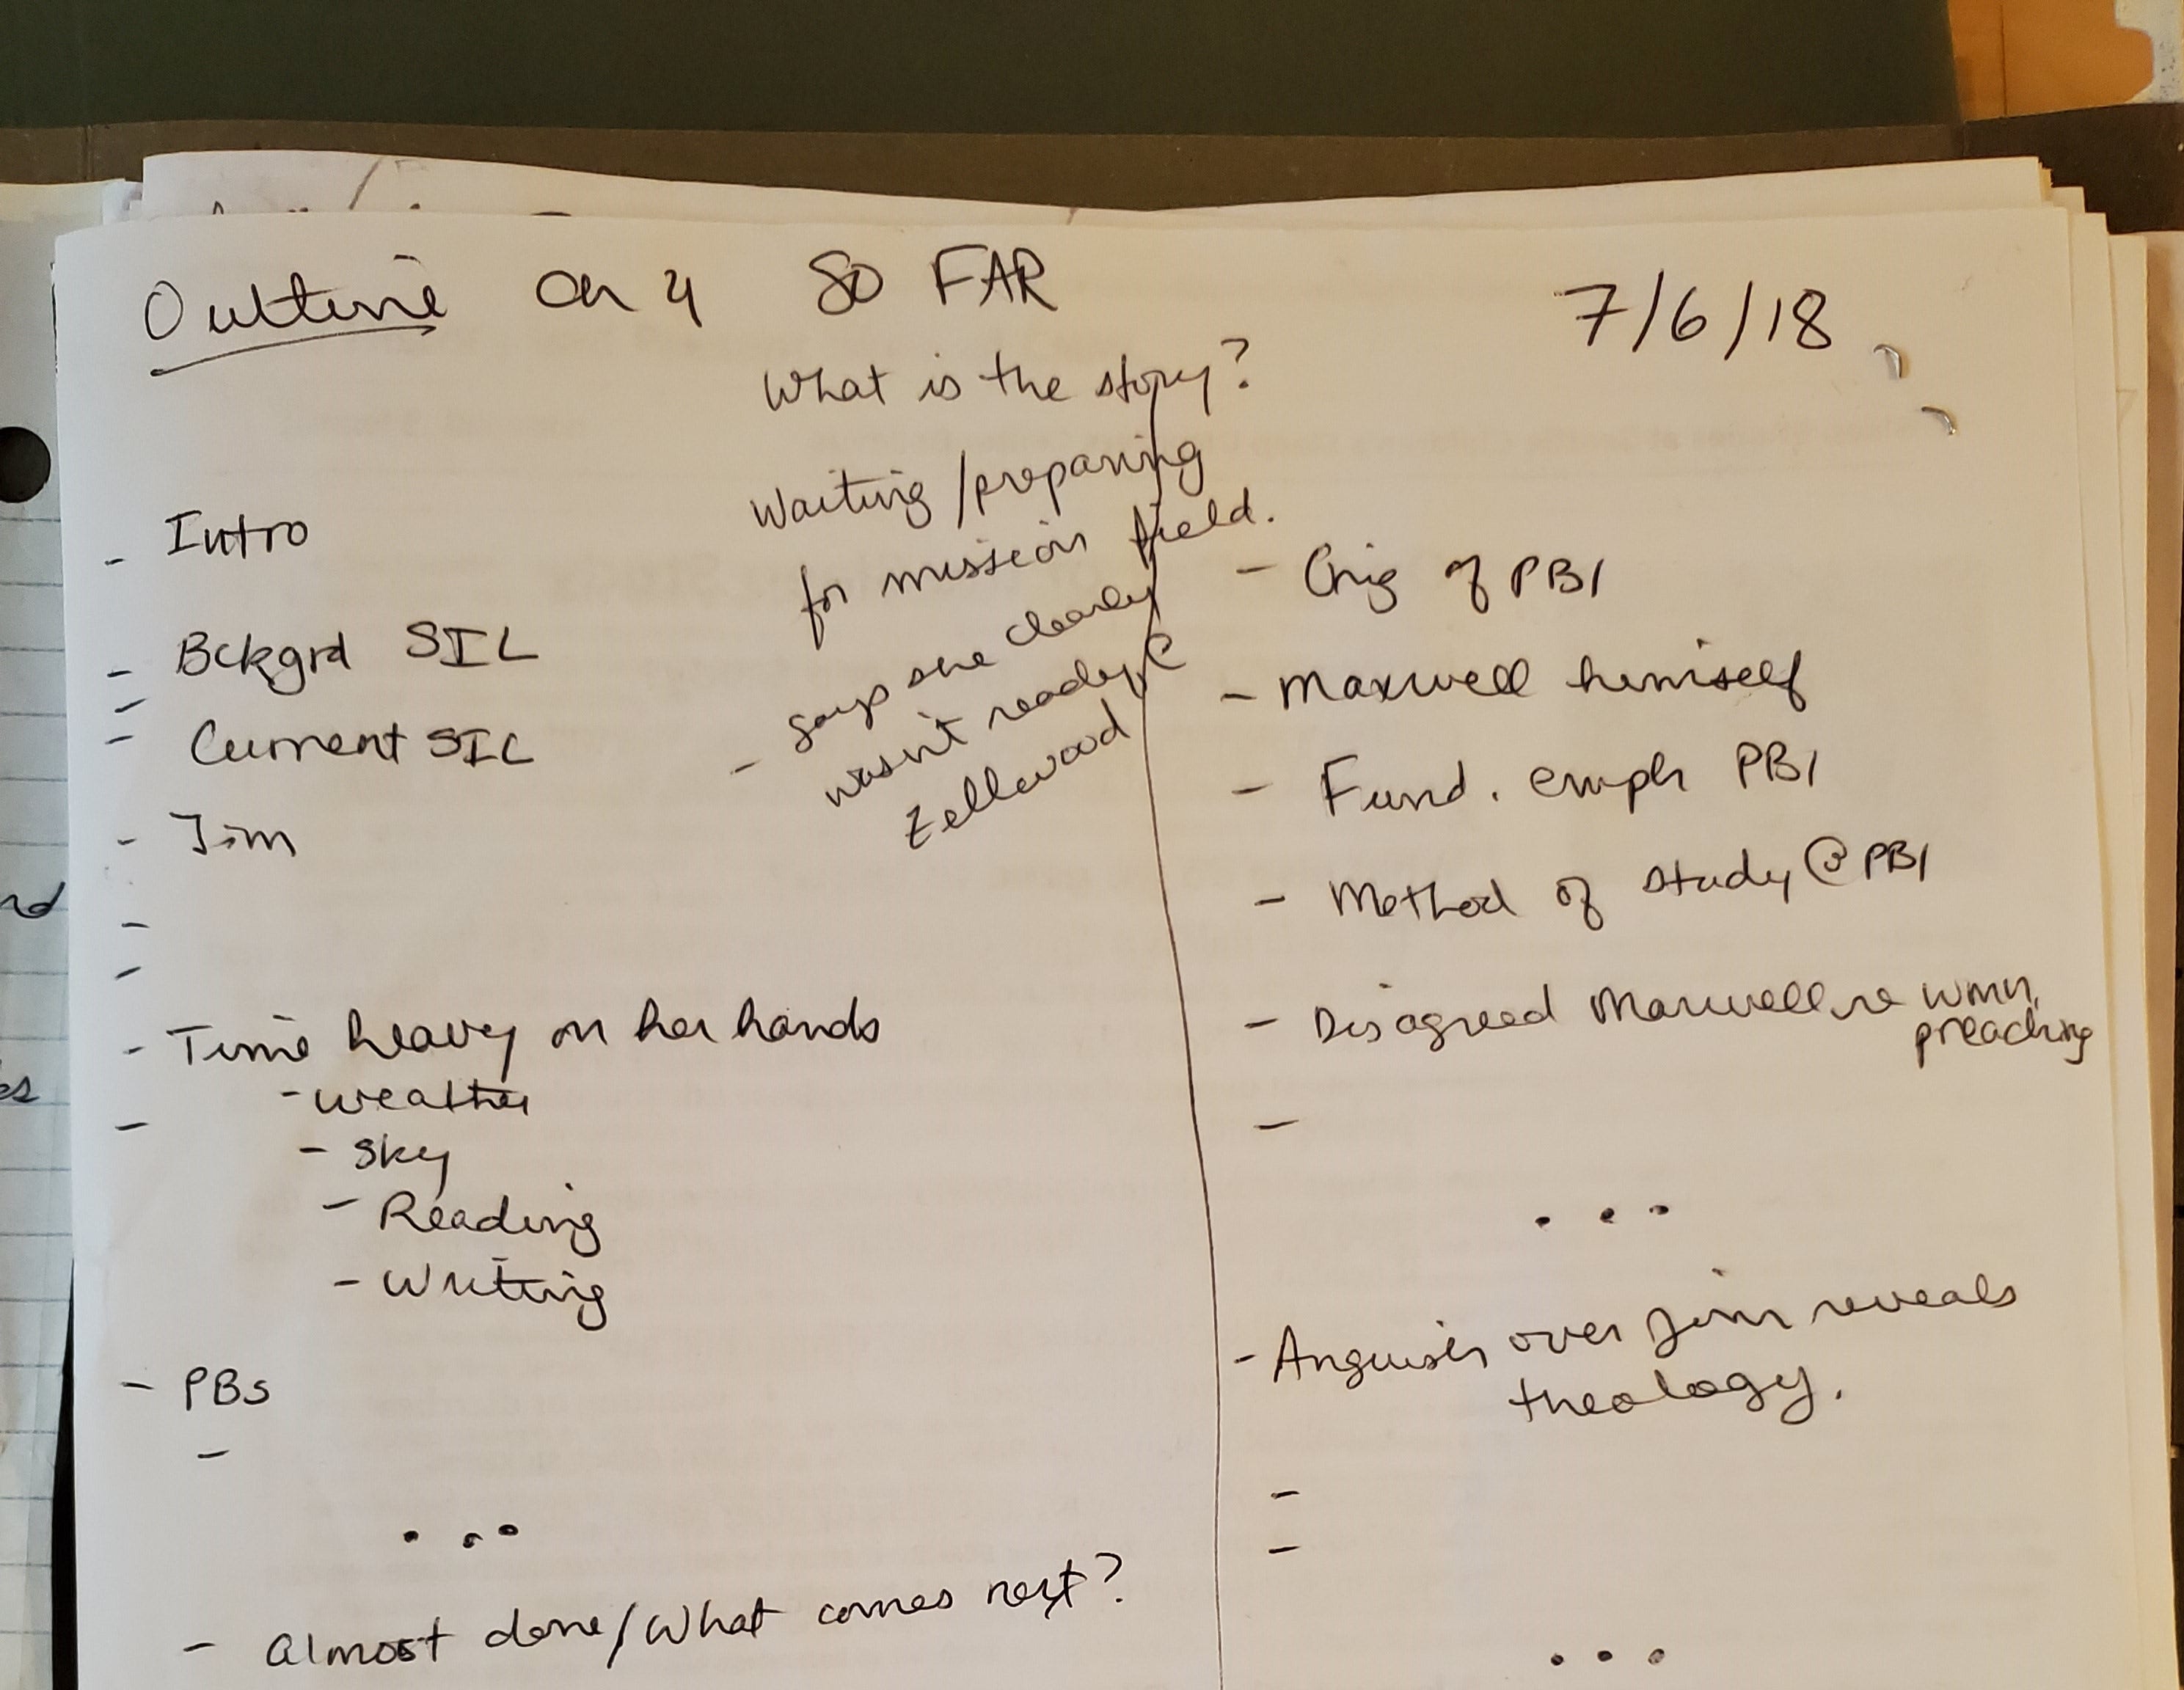 Outline Ch 4 SO FAR
7/6/18
What is the story?
Waiting/preparing
for mission field.
- says she clearly
wasn't ready @
Zellwood
- Intro
- Bckgrd SIL
-
- Current SIL
- Jim
-
-
- Time heavy on her hands
- weather
-
- Sky
- Reading
- Writing
- PBs
-
...
- Almost done/What comes next?
- Orig of PBI
- Maxwell himself
- Fund. emph PBI
- Method of study @ PBI
- Disagreed Maxwell re wmn
preaching
-
...
- Anguish over Jim reveals
theology.
-
-
...